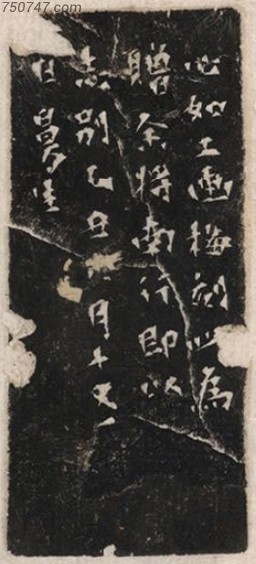 750747.com
心如工画梅刻以為
贈余将南行即以
志別乙丑月十又一
日曼生